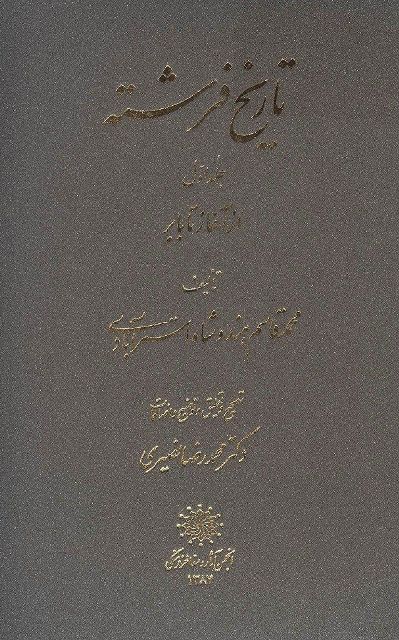 تاریخ فرشته
جلد اول
از آغاز تا بابر
تألیف
محمد قاسم هندوشاه استرآبادی
تصحیح تعلیق توضیح و اضافات
دکتر محمدرضا نصیری
انجمن آثار و مفاخر فرهنگی
۱۳۸۷